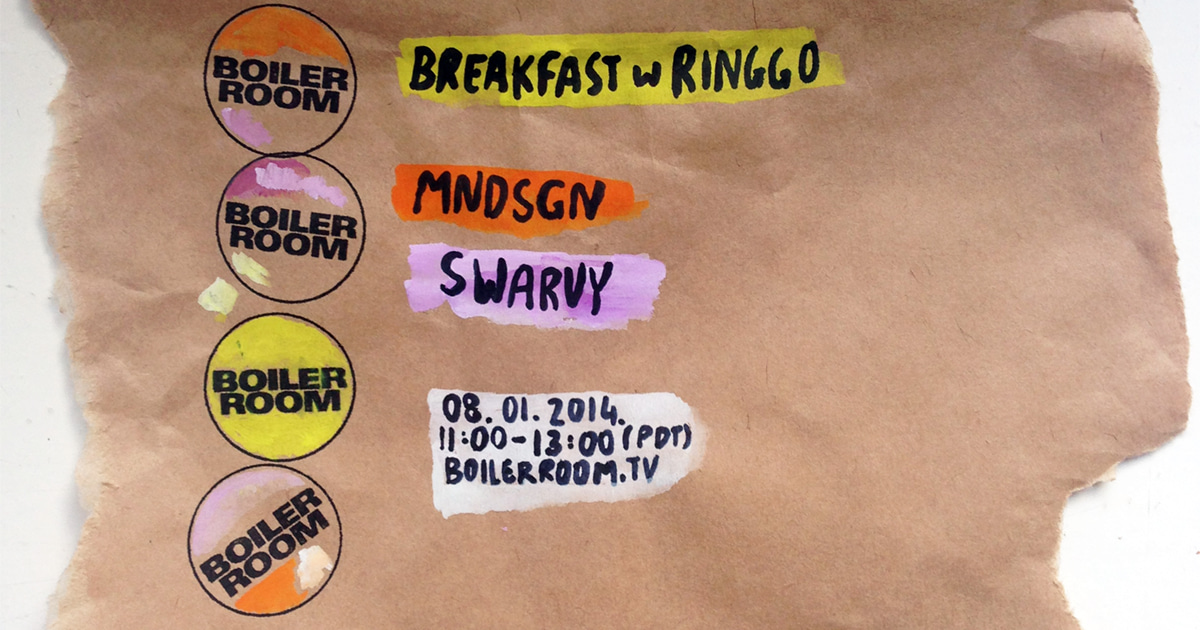 BOILER
ROOM
BREAKFAST W RINGGO
BOILER
ROOM
MNDSGN
SWARVY
BOILER
ROOM
08.01.2014.
11:00-13:00 (PDT)
BOILERROOM.TV
BOILER
ROOM